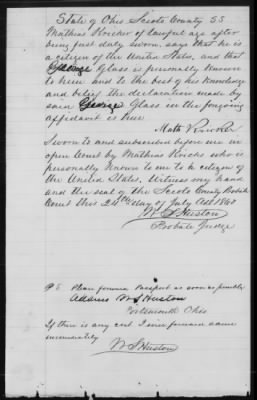 State of Ohio Scioto County SS
Mathias Kricker of lawful age after
being first duly sworn, says that he is
a citizen of the United States, and that
George Glass is personally known
to him and to the best of his knowledge
and belief the declaration made by
said George Glass in the foregoing
affidavit is true
Math Kricker
Sworn to and subscribed before me in
open Court by Mathias Kricke who is
personally known to me to be citizen of
the United States. Witness my hand
and the seal of the Scioto County Probate
Court this 24th day of July AD 1860
W S Huston
Probate Judge
P S Please forward Passport as soon as possible
Address W S Huston
Portsmouth Ohio
If there is any cost I will forward same
immediately
W S Huston